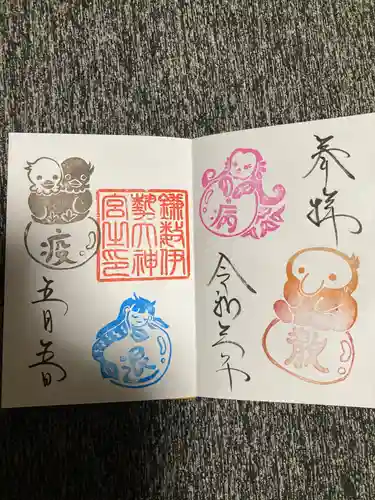 奉拝
病
散
令和三年
鎌數伊
勢大神
宮之印
疫
退
五月五日